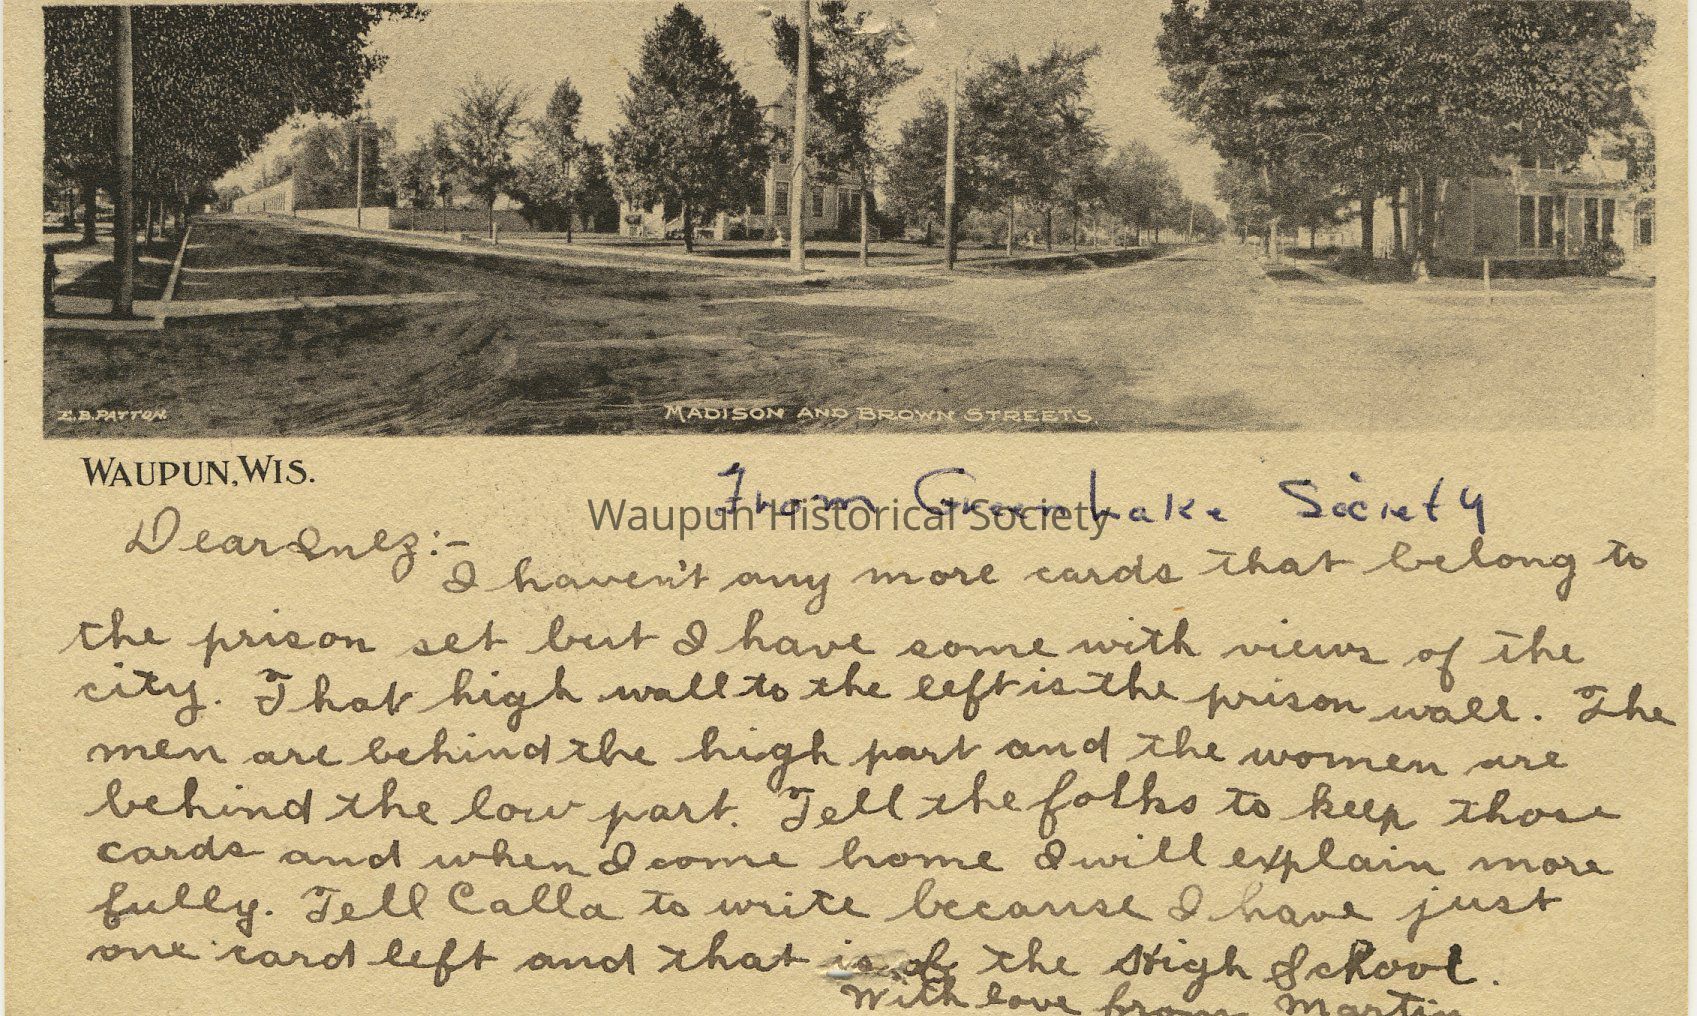 E.B.PATTON.
MADISON AND BROWN STREETS.
WAUPUN, WIS.
From Green Lake Society
Waupun Historical Society
Dear Inez:-
I haven't any more cards that belong to
the prison set but I have some with views of the
city. That high wall to the left is the prison wall. The
men are behind the high part and the women are
behind the low part. Tell the folks to keep those
cards and when I come home I will explain more
fully. Tell Calla to write because I have just
one card left and that is of the High School.
With love from Martin